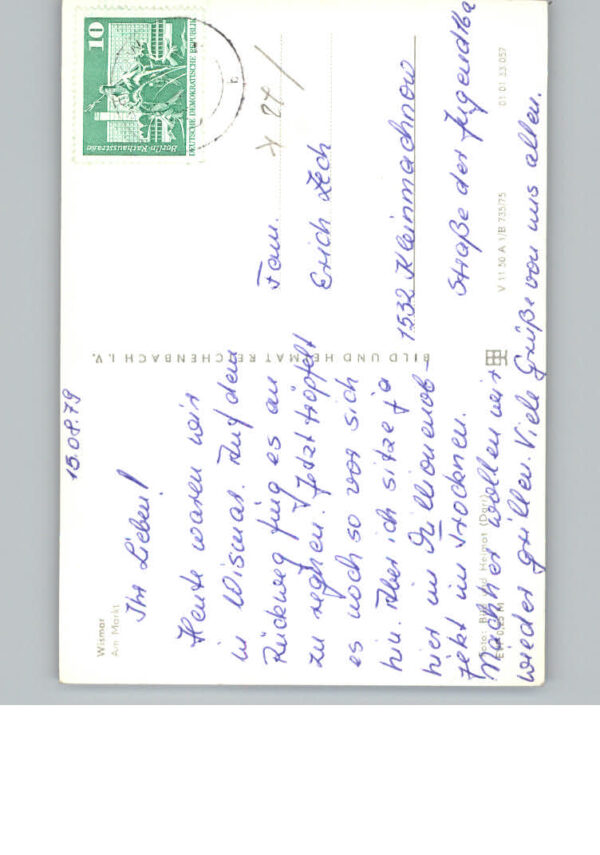 Wismar
Am Markt
15.08.79
Ihr Lieben!
Heute waren wir
in Wismar. Auf dem
Rückweg fing es an
zu regnen. Jetzt tröpfelt
es noch so vor sich
hin. Aber ich sitze ja
hier im Millionenob-
jekt im Trocknen.
Nachher wollen wir
wieder grillen. Viele Grüße von uns allen.
Foto: Bild und Heimat (Darr)
BILD UND HEIMAT REICHENBACH I. V.
10
Berlin-Rathausstrasse
DEUTSCHE DEMOKRATISCHE REPUBLIK
Fam.
Erich Zech
1532 Kleinmachnow
Straße der Jugend
V 11 50 A 1/B 735/75
01 01 33 057